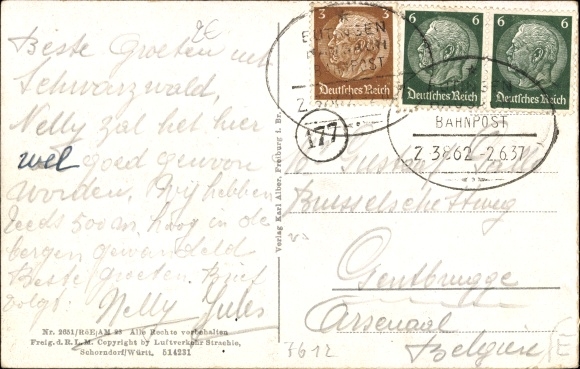 Beste Groeten uit
Schwarzwald,
Nelly zal het hier
wel goed gewoon
worden. Wij hebben
reeds 500 m. hoog in de
bergen gewandeld
Beste groeten. Brief
volgt.
Nelly Jules
Nr. 2651/RöE/AM 23 Alle Rechte vorbehalten
Freig. d. R. L. M. Copyright by Luftverkehr Strachle,
Schorndorf/Württ. 514231
Verlag Karl Alber, Freiburg i. Br.
3
Deutsches Reich
6
Deutsches Reich
6
Deutsches Reich
177
BAHNPOST
Z. 3862 -2.6.37
Gustav
Brusselsche Steenweg
Gentbrugge
Arsenaal
Belgien